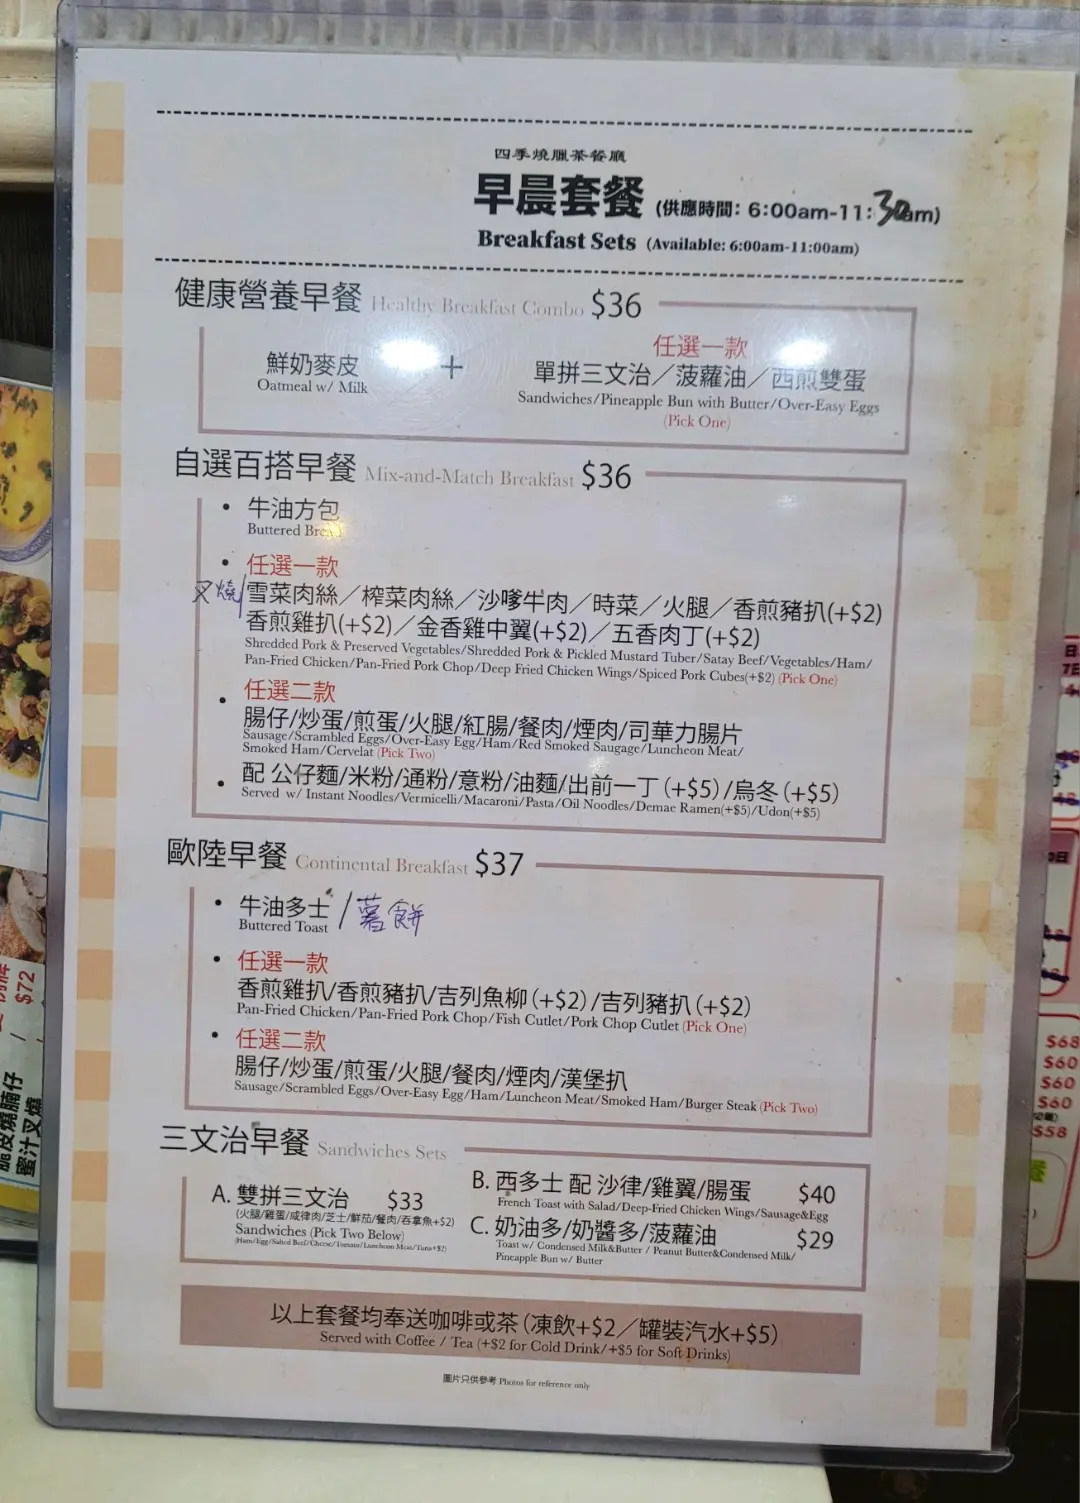 四季燒臘茶餐廳
早晨套餐 (供應時間: 6:00am-11:30am)
Breakfast Sets (Available: 6:00am-11:00am)
健康營養早餐 Healthy Breakfast Combo $36
鮮奶麥皮
Oatmeal w/ Milk
+
任選一款
單拼三文治／菠蘿油／西煎雙蛋
Sandwiches/Pineapple Bun with Butter/Over-Easy Eggs
(Pick One)
自選百搭早餐 Mix-and-Match Breakfast $36
• 牛油方包
Buttered
• 任選一款
叉燒/雪菜肉絲／榨菜肉絲／沙嗲牛肉／時菜／火腿／香煎豬扒(+$2)
香煎雞扒(+$2)／金香雞中翼(+$2)／五香肉丁(+$2)
Shredded Pork & Preserved Vegetables/Shredded Pork & Pickled Mustard Tuber/Satay Beef/Vegetables/Ham/
Pan-Fried Chicken/Pan-Fried Pork Chop/Deep Fried Chicken Wings/Spiced Pork Cubes(+$2) (Pick One)
• 任選二款
腸仔/炒蛋/煎蛋/火腿/紅腸/餐肉/煙肉/司華力腸片
Sausage/Scrambled Eggs/Over-Easy Egg/Ham/Red Smoked Saugage/Luncheon Meat/
Smoked Ham/Cervelat (Pick Two)
• 配 公仔麵/米粉/通粉/意粉/油麵/出前一丁 (+$5) /烏冬 (+$5)
Served w/ Instant Noodles/Vermicelli/Macaroni/Pasta/Oil Noodles/Demae Ramen(+$5)/Udon(+$5)
歐陸早餐 Continental Breakfast $37
• 牛油多士 /薯餅
Buttered Toast
• 任選一款
香煎雞扒/香煎豬扒/吉列魚柳 (+$2) /吉列豬扒 (+$2)
Pan-Fried Chicken/Pan-Fried Pork Chop/Fish Cutlet/Pork Chop Cutlet (Pick One)
• 任選二款
腸仔/炒蛋/煎蛋/火腿/餐肉/煙肉/漢堡扒
Sausage/Scrambled Eggs/Over-Easy Egg/Ham/Luncheon Meat/Smoked Ham/Burger Steak (Pick Two)
三文治早餐 Sandwiches Sets
A. 雙拼三文治 $33
(火腿/雞蛋/咸律肉/芝士/鮮茄/餐肉/吞拿魚+$2)
Sandwiches (Pick Two Below)
(Ham/Egg/Salted Beef/Cheese/Tomato/Luncheon Meat/Tuna+$2)
B. 西多士 配 沙律/雞翼/腸蛋 $40
French Toast with Salad/Deep-Fried Chicken Wings/Sausage&Egg
C. 奶油多/奶醬多/菠蘿油 $29
Toast w/ Condensed Milk&Butter / Peanut Butter&Condensed Milk/
Pineapple Bun w/ Butter
以上套餐均奉送咖啡或茶 (凍飲+$2／罐裝汽水+$5)
Served with Coffee / Tea (+$2 for Cold Drink/+$5 for Soft Drinks)
圖片只供參考 Photos for reference only
$72
脆皮燒腩仔
蜜汁叉燒
$68
$60
$60
$60
$58